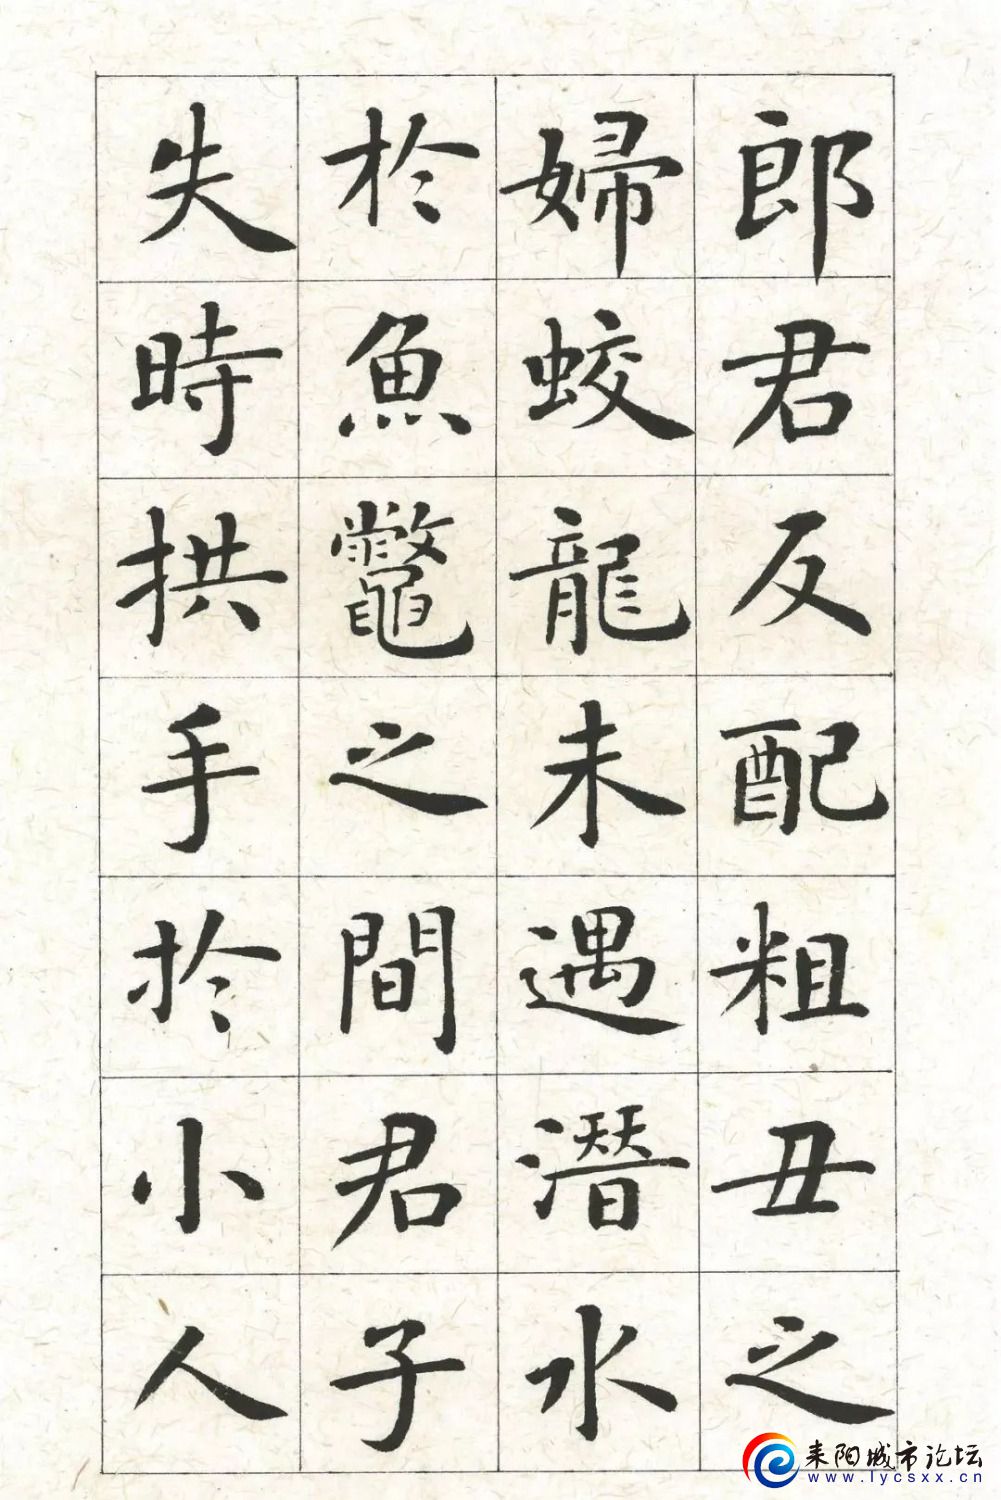 郎君反配粗丑之
婦蛟龍未遇潛水
於魚鼈之間君子
失時拱手於小人
耒阳城市论坛
www.lycsxx.cn